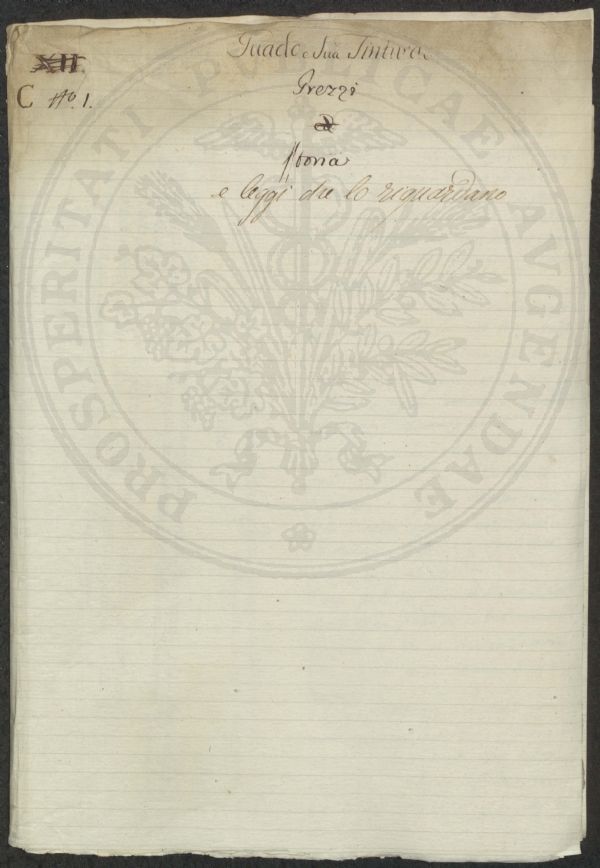 Guado e Sua Tintura
XII.
Prezzi
C No. 1.
ed
Storia
e leggi che lo riguardano
PROSPERITATI PUBLICAE AVGENDAE